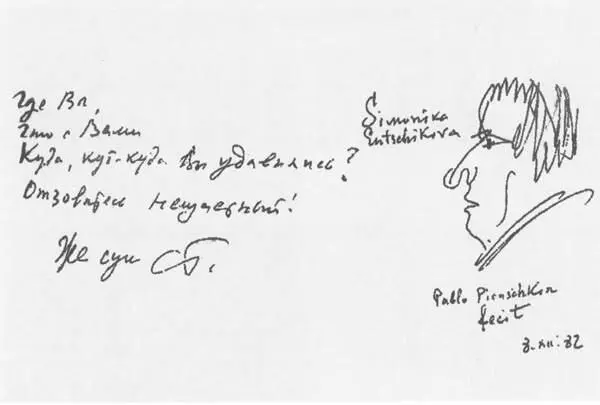 Где Вы,
Что с Вами
Куда, куда-куда Вы удавились?
Отзовитесь
Же суи СБ.
Simonika
Entschikova
Pablo Picaschkin
fecit
3.XII.82